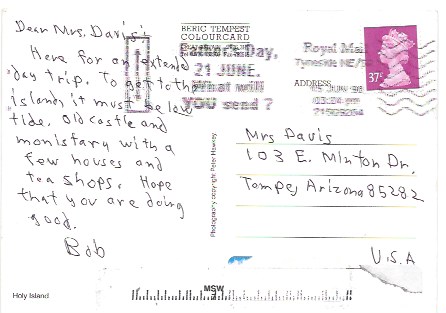 Dear Mrs. Davis:
Here for an extended
day trip. To get to the
islands it must be low
tide. Old castle and
monistary with a
few houses and
tea shops. Hope
that you are doing
good.
Bob
Holy Island
BERIC TEMPEST
COLOURCARD
Photography copyright Peter Hawkey
Father's Day,
21 JUNE.
What will
YOU send?
Royal Mail
Tyneside NE/SR
ADDRESS
37p
Mrs Davis
103 E. Minton Dr.
Tempe, Arizona 85282
U.S.A
MSW